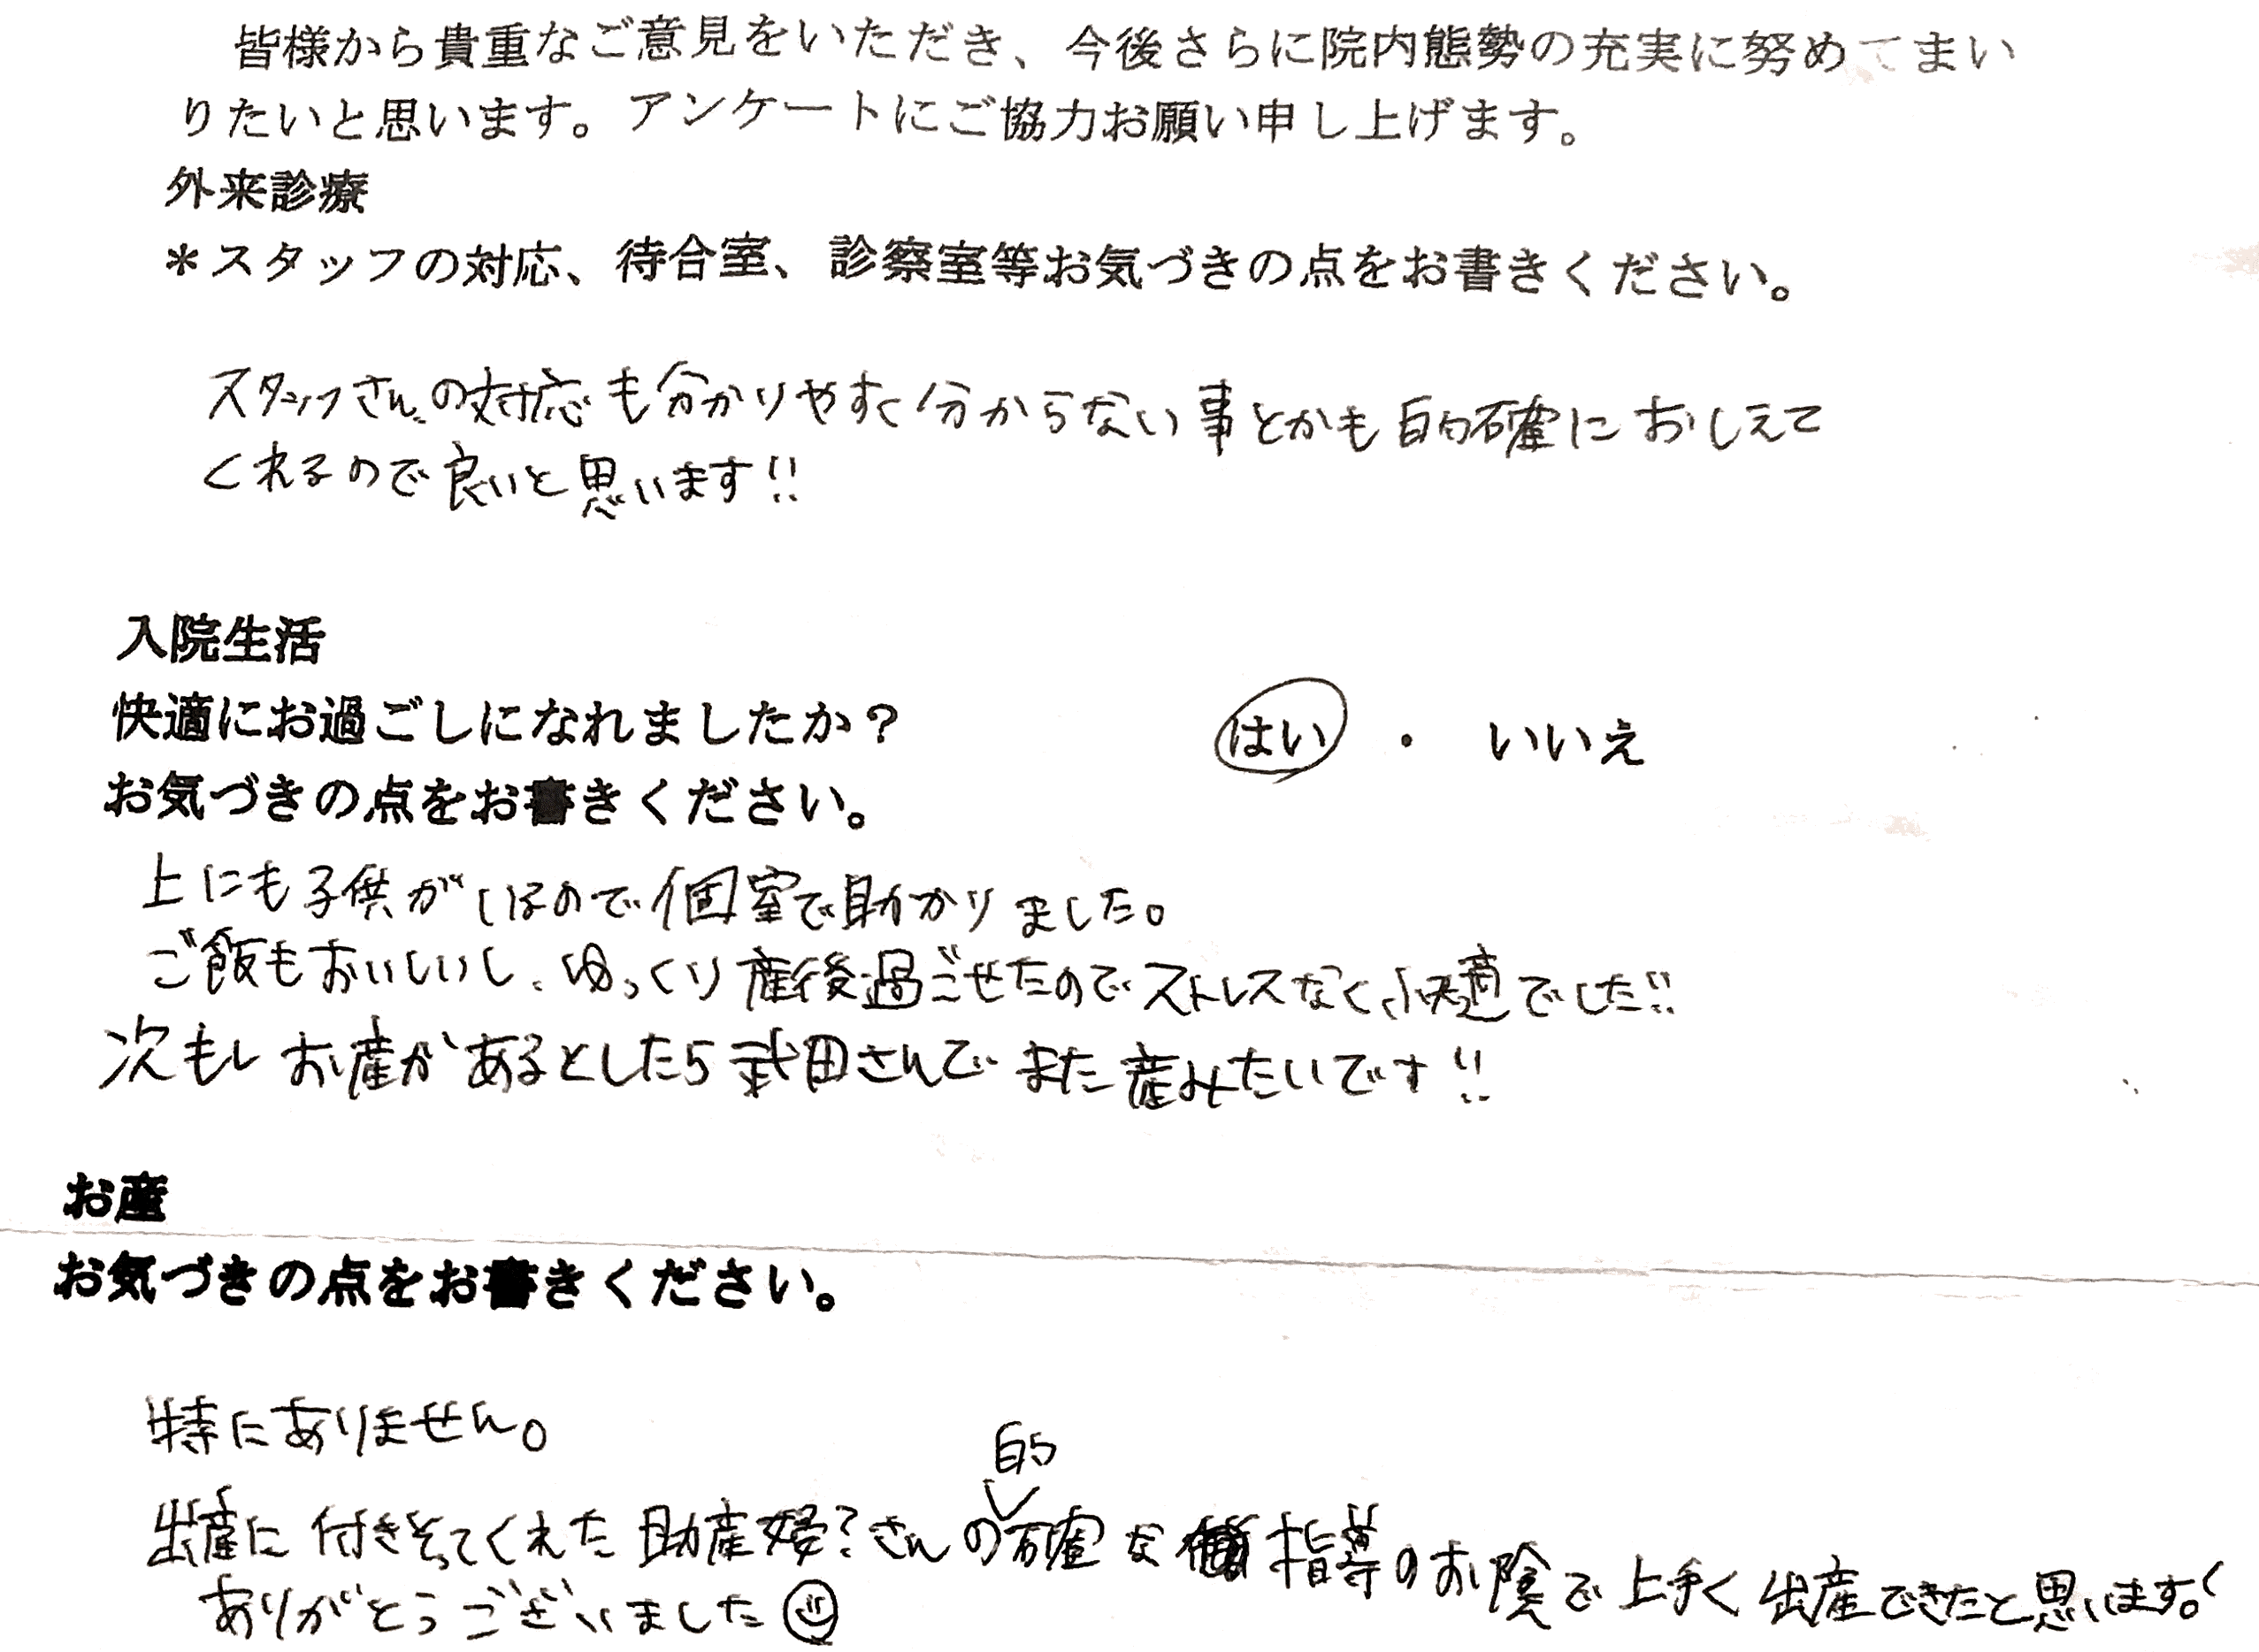 皆様から貴重なご意見をいただき、今後さらに院内態勢の充実に努めてまい
りたいと思います。アンケートにご協力お願い申し上げます。
外来診療
*スタッフの対応、待合室、診察室等お気づきの点をお書きください。
スタッフさんの対応も分かりやすく分からない事とかも的確におしえて
くれるので良いと思います!!
入院生活
快適にお過ごしになれましたか? はい ・ いいえ
お気づきの点をお書きください。
上にも子供がいるので個室で助かりました。
ご飯もおいしいし、ゆっくり産後過ごせたのでストレスなく、快適でした!!
次もしお産があるとしたら武田さんでまた産みたいです!!
お産
お気づきの点をお書きください。
特にありません。
出産に付きそってくれた助産婦?さんの的確な指導のお陰で上手く出産できたと思います。
ありがとうございました